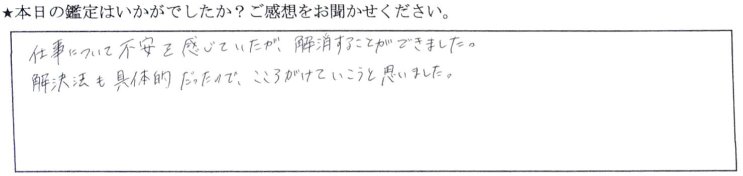 ★本日の鑑定はいかがでしたか？ご感想をお聞かせください。
仕事について不安を感じていたが、解消することができました。
解決法も具体的だったので、こころがけていこうと思いました。